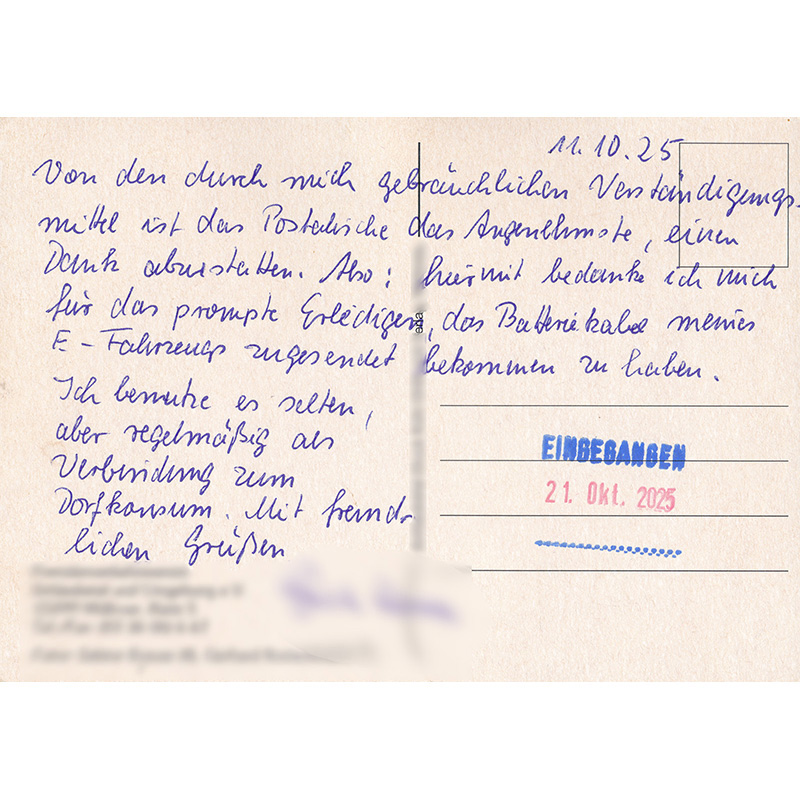 11.10.25
Von den durch mich gebräuchlichen Verständigungs-
mittel ist das Postalische das Angenehmste, einen
Dank abzustatten. Also: hiermit bedanke ich mich
für das prompte Erledigen, das Batteriekabel meines
E-Fahrzeugs zugesendet bekommen zu haben.
Ich benutze es selten,
aber regelmäßig als
Verbindung zum
Dorfkonsum. Mit freund-
lichen Grüßen
EINGEGANGEN
21. Okt. 2025